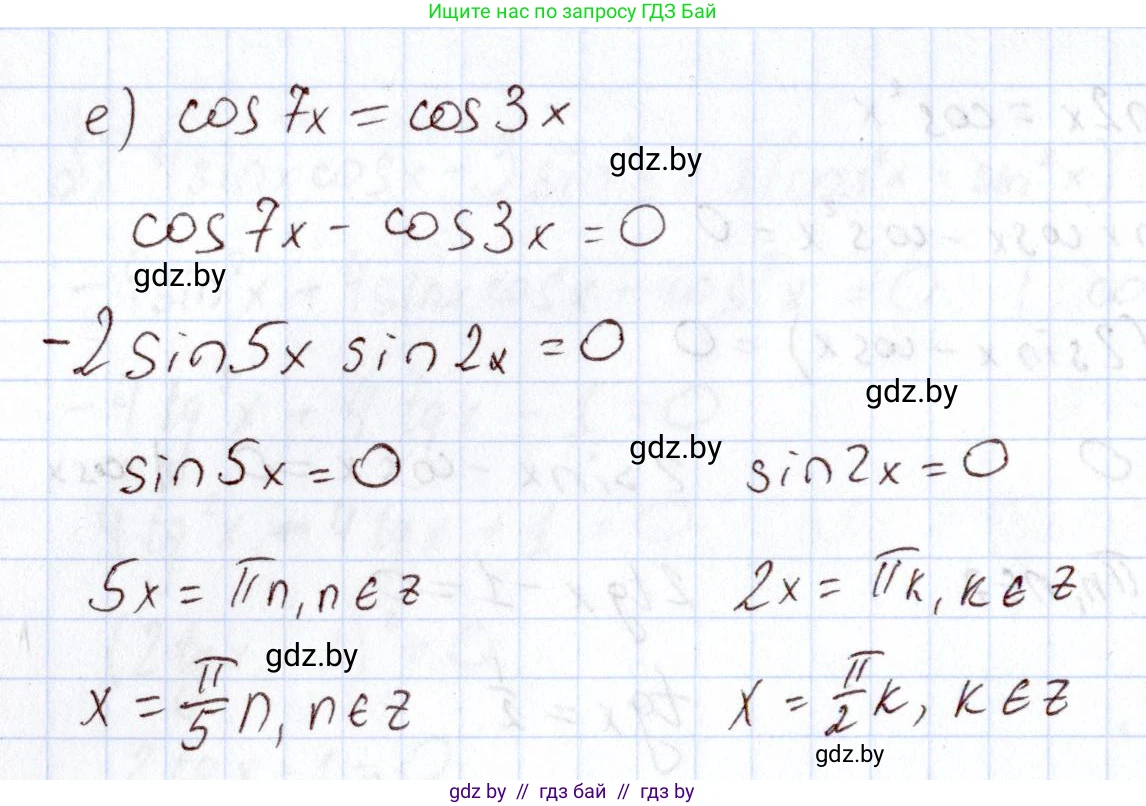 Ищите нас по запросу ГДЗ Бай
е) cos 7x = cos 3x
gdz.by
cos 7x - cos 3x = 0
gdz.by
-2 sin 5x sin 2x = 0
gdz.by
sin 5x = 0 gdz.by sin 2x = 0
5x = πn, n ∈ z 2x = πk, k ∈ z
gdz.by
x = π/5 n, n ∈ z x = π/2 k, k ∈ z
gdz.by
gdz by // гдз бай // gdz by